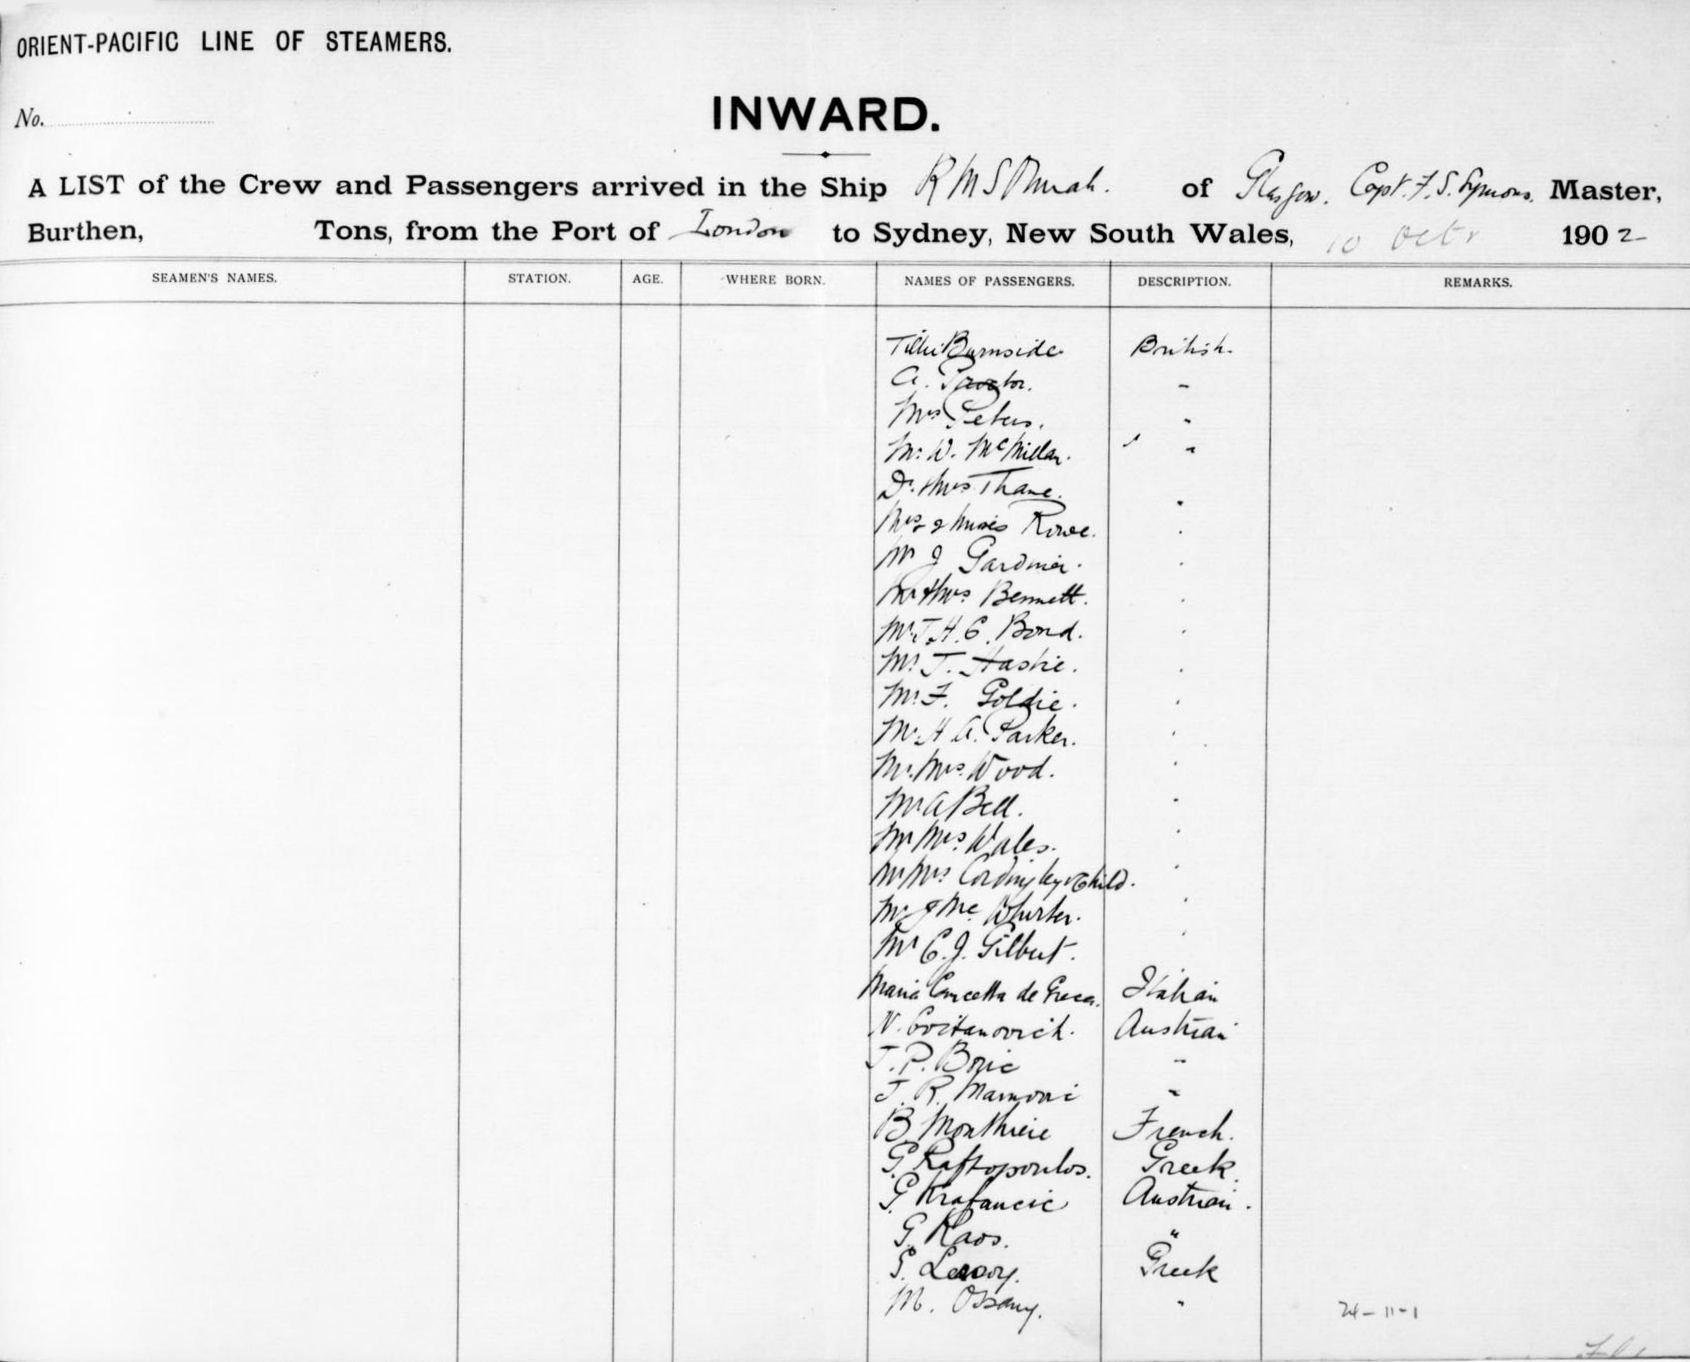 ORIENT-PACIFIC LINE OF STEAMERS.
No.
INWARD.
A LIST of the Crew and Passengers arrived in the Ship RMS Omrah. of Glasgow. Capt. F. S. Symons. Master,
Burthen, Tons, from the Port of London to Sydney, New South Wales, 10 Octr 1902
SEAMEN'S NAMES. STATION. AGE. WHERE BORN. NAMES OF PASSENGERS. DESCRIPTION. REMARKS.
Burnside British.
A. Proctor. "
Mrs Peters. "
Mr W. McMillan. "
Dr & Mrs Thane. "
Mrs & Misses Rowe. "
Mr J Gardiner. "
Mr & Mrs Bennett. "
Mr T. H. C. Bond. "
Mr T. Hastie. "
Mr F. Goldie. "
Mr H A. Parker. "
Mr. Mrs. Wood. "
Mr A Bell. "
Mr Mrs. Wales. "
Mr Mrs Cordingley & Child. "
Mr J McWhirter. "
Mr C. J. Gilbert. "
Maria Concetta de Greca. Italian
N. Cvitanovich. Austrian
J. P. Boric "
J. R. "
B Monthiere French.
G. Raftopoulos. Greek.
G. Krafancic Austrian.
G. Raos. "
G. Greek
M. Ossany. "
24-11-1